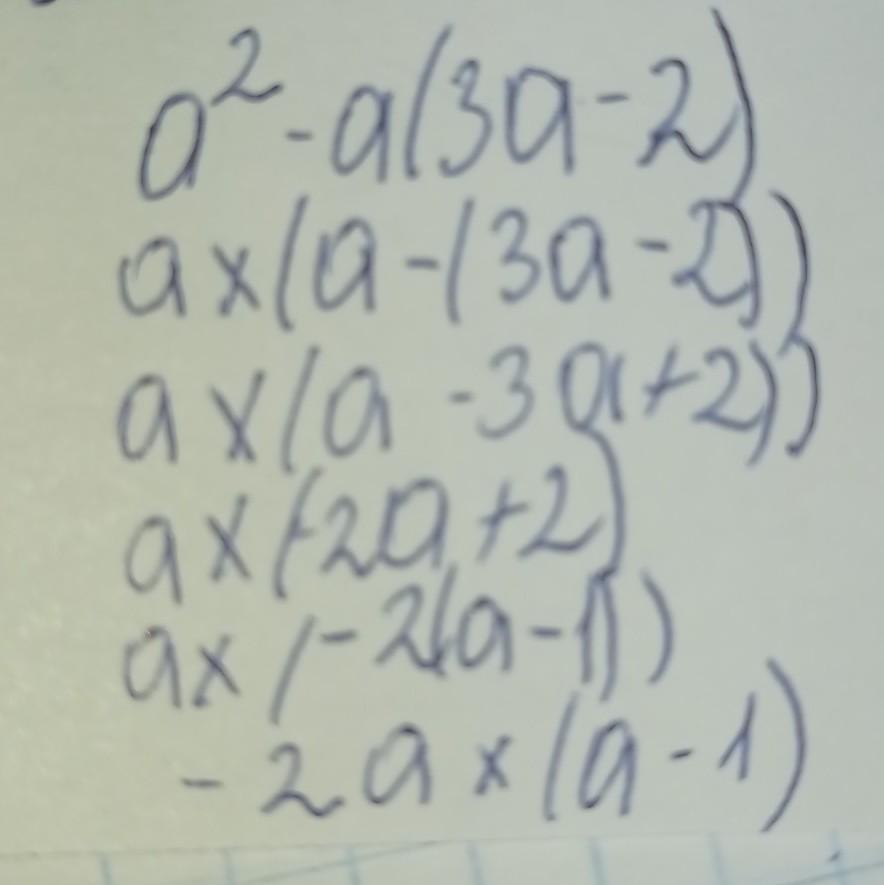 a² - a(3a - 2)
a × (a - (3a - 2))
a × (a - 3a + 2))
a × (-2a + 2)
a × (-2(a - 1))
- 2a × (a - 1)